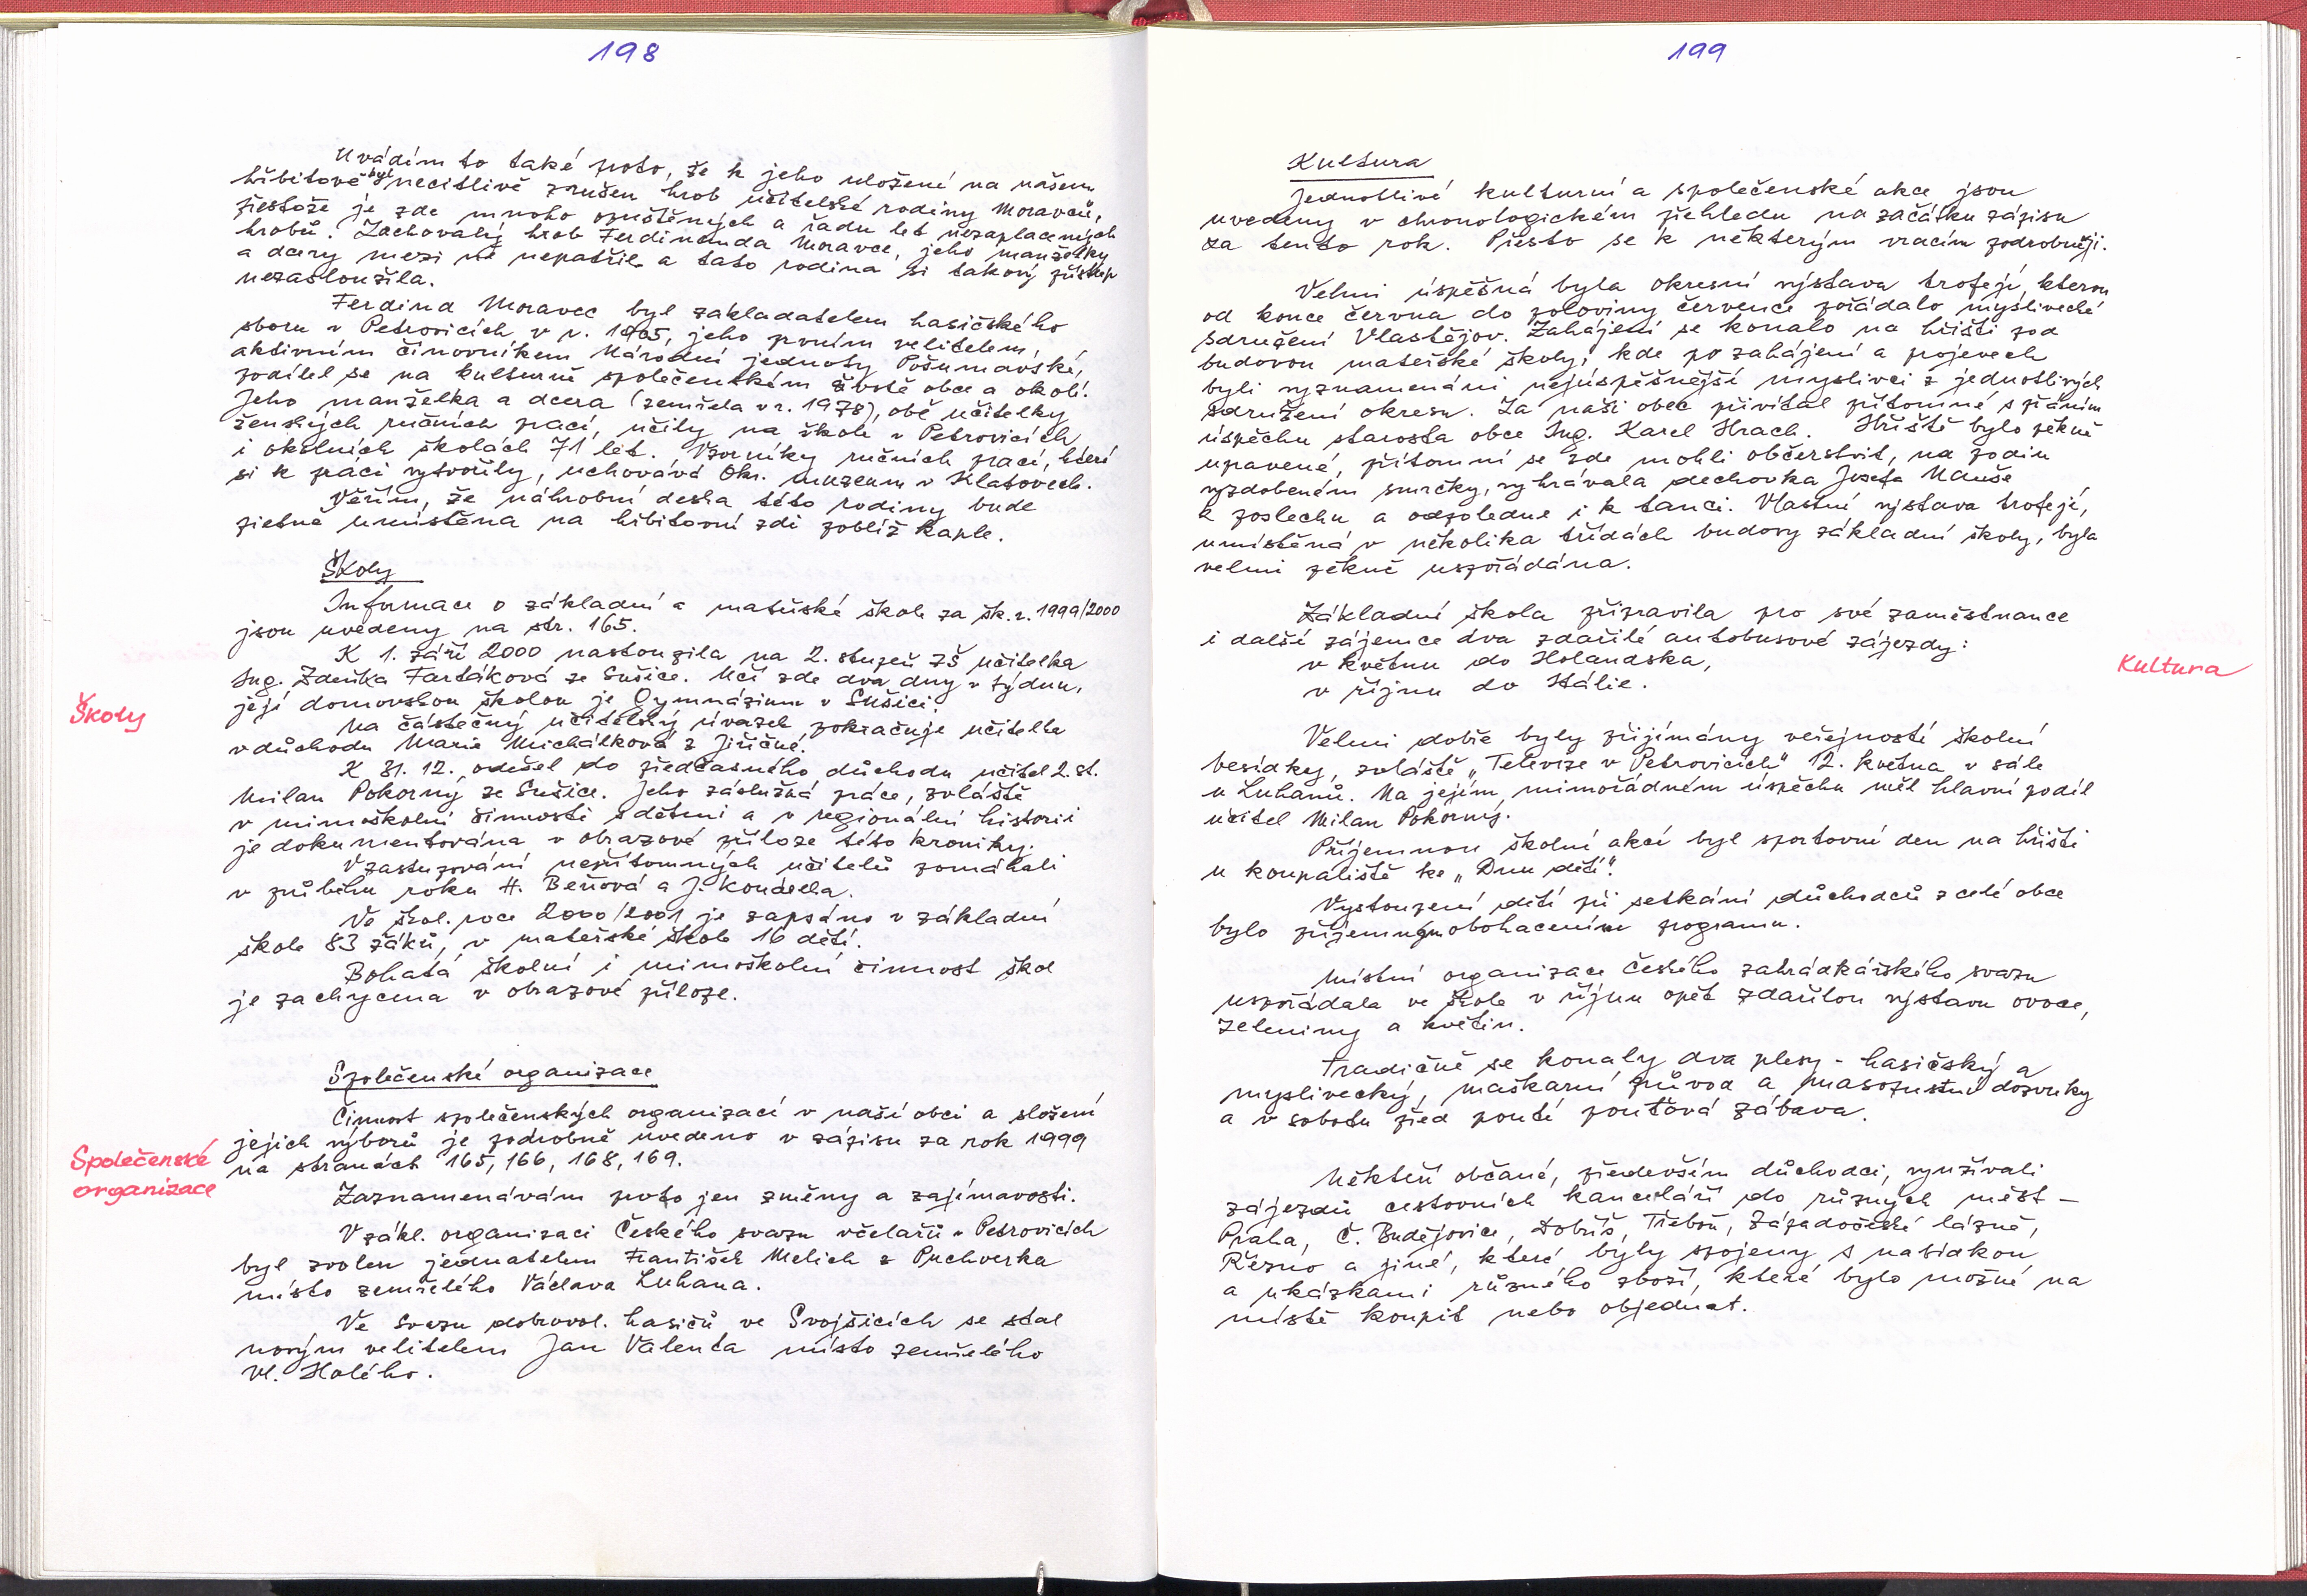 198
Uvádím to také proto, že k jeho uložení na našem
hřbitově byl necitlivě zrušen hrob učitelské rodiny Moravců,
přestože je zde mnoho opuštěných a řadu let nezaplacených
hrobů. Zachovalý hrob Ferdinanda Moravce, jeho manželky
a dcery mezi ně nepatřil a tato rodina si takový přístup
nezasloužila.
Ferdind Moravec byl zakladatelem hasičského
sboru v Petrovicích v r. 1905, jeho prvním velitelem,
aktivním činovníkem Národní jednoty Pošumavské,
podílel se na kulturně společenském životě obce a okolí.
Jeho manželka a dcera (zemřela v r. 1978), obě učitelky
ženských ručních prací, učily na škole v Petrovicích
i okolních školách 71 let. Vzorníky ručních prací, které
si k práci vytvořily, uchovává Okr. muzeum v Klatovech.
Věřím, že náhrobní deska této rodiny bude
pietně umístěna na hřbitovní zdi poblíž kaple.
Školy
Informace o základní a mateřské škole za šk. r. 1999/2000
jsou uvedeny na str. 165.
K 1. září 2000 nastoupila na 2. stupeň ZŠ učitelka
Ing. Zdeňka Fartáková ze Sušice. Učí zde dva dny v týdnu,
její domovskou školou je Gymnázium v Sušici.
Školy
Na částečný učitelský úvazek pokračuje učitelka
v důchodu Marie Michálková z Jiřičné.
K 31. 12. odešel do předčasného důchodu učitel 2. st.
Milan Pokorný ze Sušice. Jeho záslužná práce, zvláště
v mimoškolní činnosti s dětmi a v regionální historii
je dokumentována v obrazové příloze této kroniky.
V zastupování nepřítomných učitelů pomáhali
v průběhu roku H. Beňová a J. Kondelka.
Ve škol. roce 2000/2001 je zapsáno v základní
škole 83 žáků, v mateřské škole 16 dětí.
Bohatá školní i mimoškolní činnost škol
je zachycena v obrazové příloze.
Společenské organizace
Činnost společenských organizací v naší obci a složení
jejich výborů je podrobně uvedeno v zápisu za rok 1999
na stranách 165, 166, 168, 169.
Společenské
organizace
Zaznamenávám proto jen změny a zajímavosti.
V zákl. organizaci Českého svazu včelařů v Petrovicích
byl zvolen jednatelem František Melich z Puchverka
místo zemřelého Václava Luhana.
Ve Svazu dobrovol. hasičů ve Svojšicích se stal
novým velitelem Jan Valenta místo zemřelého
Vl. Holého.
199
Kultura
Jednotlivé kulturní a společenské akce jsou
uvedeny v chronologickém přehledu na začátku zápisu
za tento rok. Přesto se k některým vracím podrobněji.
Velmi úspěšná byla okresní výstava trofejí, kterou
od konce června do poloviny července pořádalo myslivecké
sdružení Vlastějov. Zahájení se konalo na hřišti pod
budovou mateřské školy, kde po zahájení a projevech
byli vyznamenáni nejúspěšnější myslivci z jednotlivých
sdružení okresu. Za naši obec přivítal přítomné s přáním
úspěchu starosta obce Ing. Karel Hrach. Hřiště bylo pěkně
upravené, přítomní se zde mohli občerstvit, na podiu
vyzdobeném smrčky, vyhrávala dechovka Josefa Nauše
k poslechu a odpoledne i k tanci. Vlastní výstava trofejí,
umístěná v několika třídách budovy základní školy, byla
velmi pěkně uspořádána.
Základní škola připravila pro své zaměstnance
i další zájemce dva zdařilé autobusové zájezdy:
v květnu do Holandska,
v říjnu do Itálie.
Kultura
Velmi dobře byly přijímány veřejností školní
besídky, zvláště „Televize v Petrovicích" 12. května v sále
u Luhanů. Na jejím mimořádném úspěchu měl hlavní podíl
učitel Milan Pokorný.
Příjemnou školní akcí byl sportovní den na hřišti
u koupaliště ke „Dnu dětí".
Vystoupení dětí při setkání důchodců z celé obce
bylo příjemným obohacením programu.
Místní organizace Českého zahrádkářského svazu
uspořádala ve škole v říjnu opět zdařilou výstavu ovoce,
zeleniny a květin.
Tradičně se konaly dva plesy - hasičský a
myslivecký, maškarní průvod a masopustní dozvuky
a v sobotu před poutí pouťová zábava.
Někteří občané, především důchodci, využívali
zájezdů cestovních kanceláří do různých měst –
Praha, Č. Budějovice, Dobříš, Třeboň, Západočeské lázně,
Řezno a jiné, které byly spojeny s nabídkou
a ukázkami různého zboží, které bylo možné na
místě koupit nebo objednat.